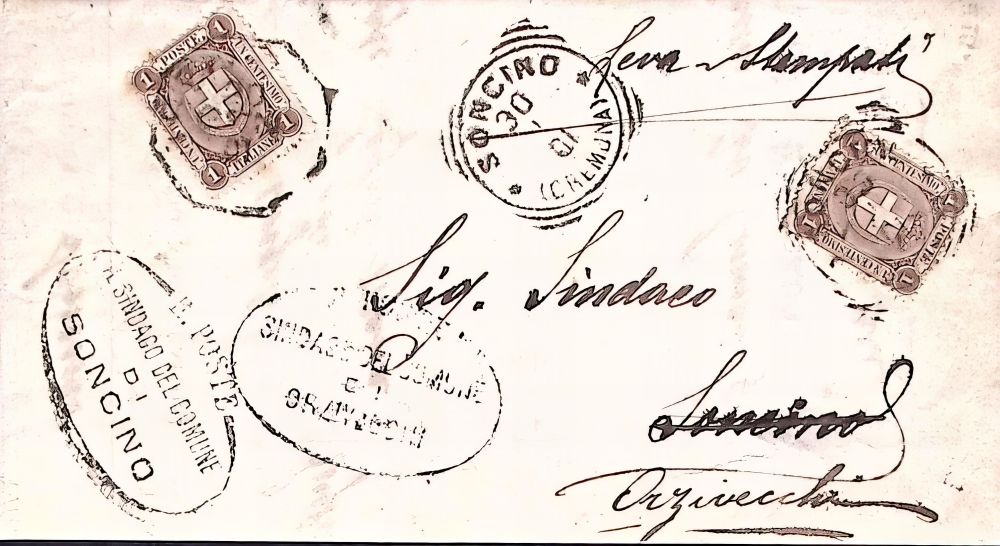 Leva - Stampati
SONCINO
30
01
(CREMONA)
POSTE
UN CENTESIMO
ITALIANE
1
1
1
1
CENTESIMO
POSTE
UN CENTESIMO
1
1
1
1
Sig. Sindaco
Soncino
Orzivecchi
R. POSTE
IL SINDACO DEL COMUNE
DI
SONCINO
SINDACO DEL COMUNE
DI